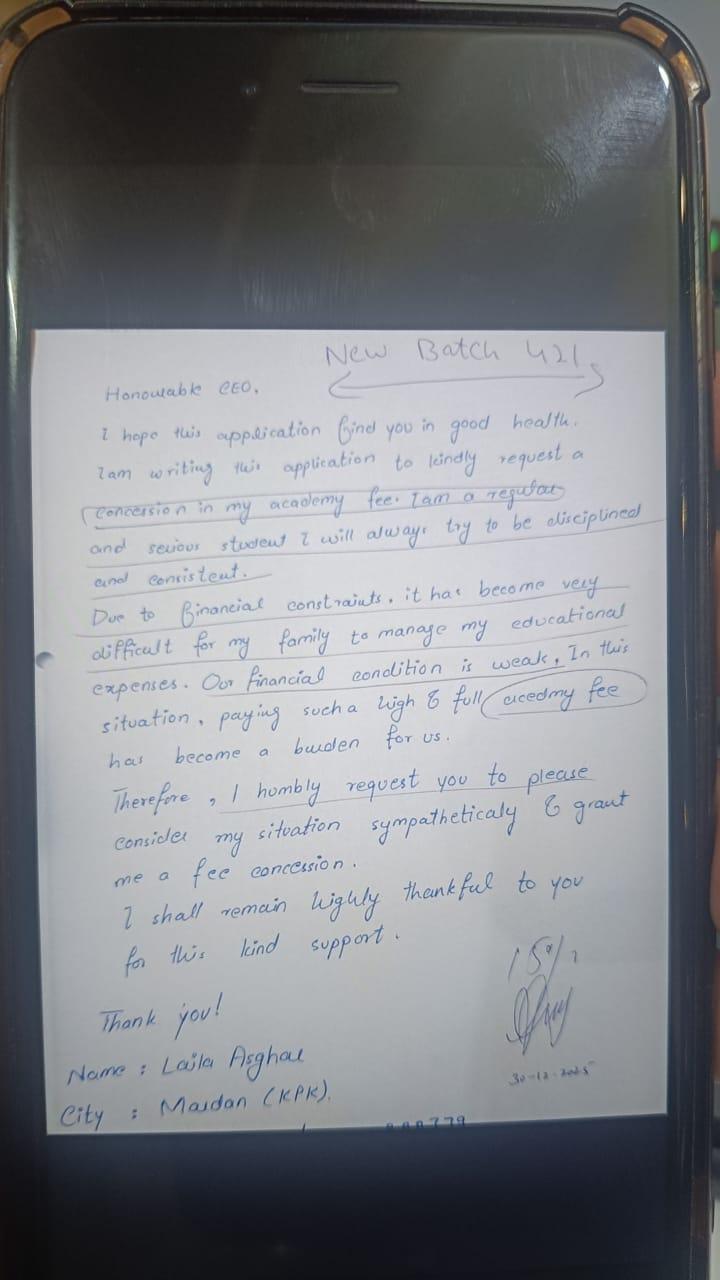 New Batch 421
Honourable CEO,
I hope this application find you in good health.
I am writing this application to kindly request a
concession in my academy fee. I am a regular
and serious student I will always try to be disciplined
and consistent.
Due to financial constraints, it has become very
difficult for my family to manage my educational
expenses. Our financial condition is weak, In this
situation, paying such a high & full acedmy fee
has become a burden for us.
Therefore, I humbly request you to please
consider my situation sympatheticaly & grant
me a fee concession.
I shall remain highly thankful to you
for this kind support.
15%
Thank you!
30-12-2025
Name : Laila Asghar
City : Mardan (KPK).
779